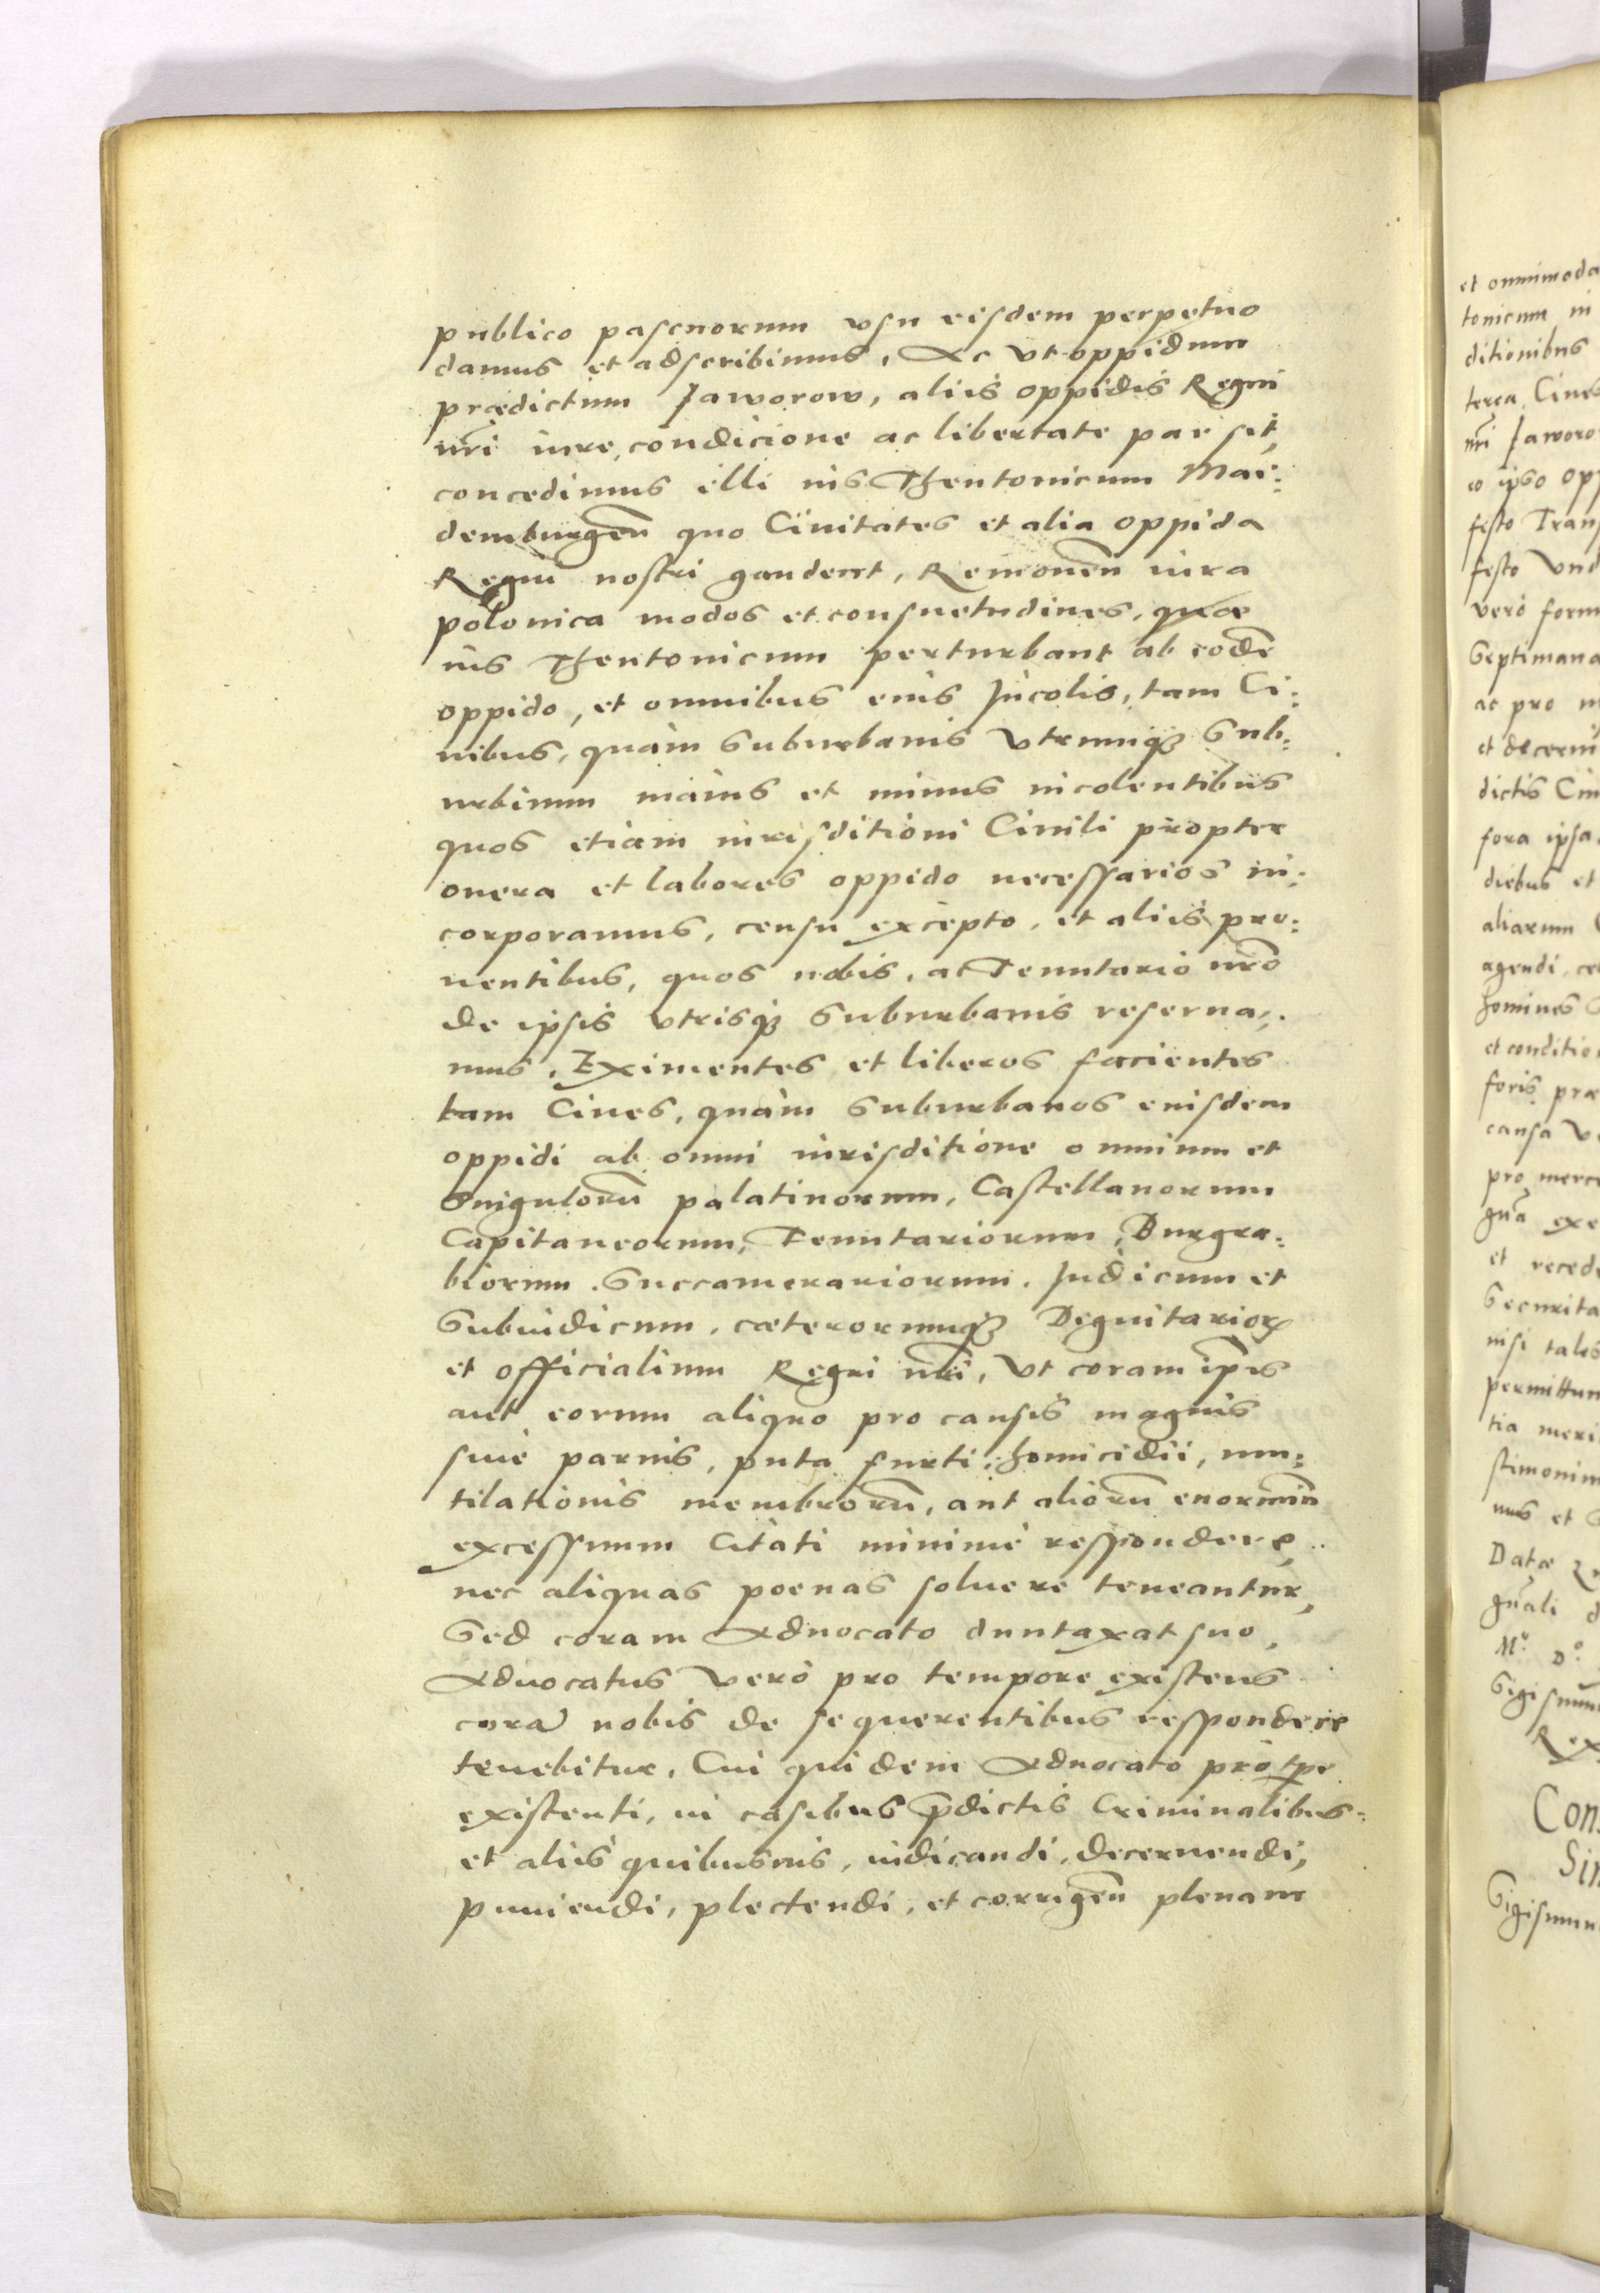 publico pascuorum vsu eisdem perpetuo
damus et adscribimus, Ac vt oppidum
prædictum Jaworow, aliis oppidis Regni
nri̅ iure, condicione ac libertate par sit,
concedimus illi ius Theutonicum Mai:
demburgen̅ quo Ciuitates et alia oppida
Regni nostri gaudent, Remouen̅ iura
polonica modos et consuetudines, quæ
ius Theutonicum perturbant ab eode̅
oppido, et omnibus eius Incolis, tam Ci:
uibus, quàm Suburbanis vtrumqꝫ Sub:
urbium maius et minus incolentibus
quos etiam iurisditioni Ciuili propter
onera et labores oppido necessarios in:
corporamus, censu excepto, et aliis pro:
uentibus, quos nobis, ac Tenutario nro̅
de ipsis vtrisqꝫ Suburbanis reserua:
mus. Eximentes et liberos facientes
tam Ciues, quàm Suburbanos eiusdem
oppidi ab omni iurisditione omnium et
Singuloru̅ palatinorum, Castellanorum
Capitaneorum, Tenutariorum, Burgra:
biorum, Succamerariorum, Judicum et
Subiudicum, cæterorumqꝫ Dignitarioꝝ
et officialium Regni nri̅, vt coram ip̅is
aut eorum aliquo pro causis magnis
siue paruis, puta furti, homicidii, mu:
tilationis membroru̅, aut alioru̅ enormiu̅
excessuum Citati minimè respondere,
nec aliquas poenas soluere teneantur,
Sed coram Aduocato duntaxat suo,
Aduocatus verò pro tempore existens
cora̅ nobis de se querentibus respondere
tenebitur, Cui quidem Aduocato pro tp̅e
existenti, in casibus p̅dictis Criminalibus
et aliis quibusuis, iudicandi, decernendi,
puniendi, plectendi, et corrigen̅ plenam
et omnimoda
tonicum in
ditionibus
terea Ciues
nri̅ Jaworo
eo ipso opp
festo Trans
festo Vnd
verò forum
Septimana
ac pro
et decerni
dictis Ciu
fora ipsa
diebus et
aliarum
agendi, ce
homines
et conditio
foris præ
causa
pro merc
exe
et recede
Securita
nisi tales
permittun
tia meri
stimonium
mus et
Datæ
Sigismun
Rex
Con
Sigismun